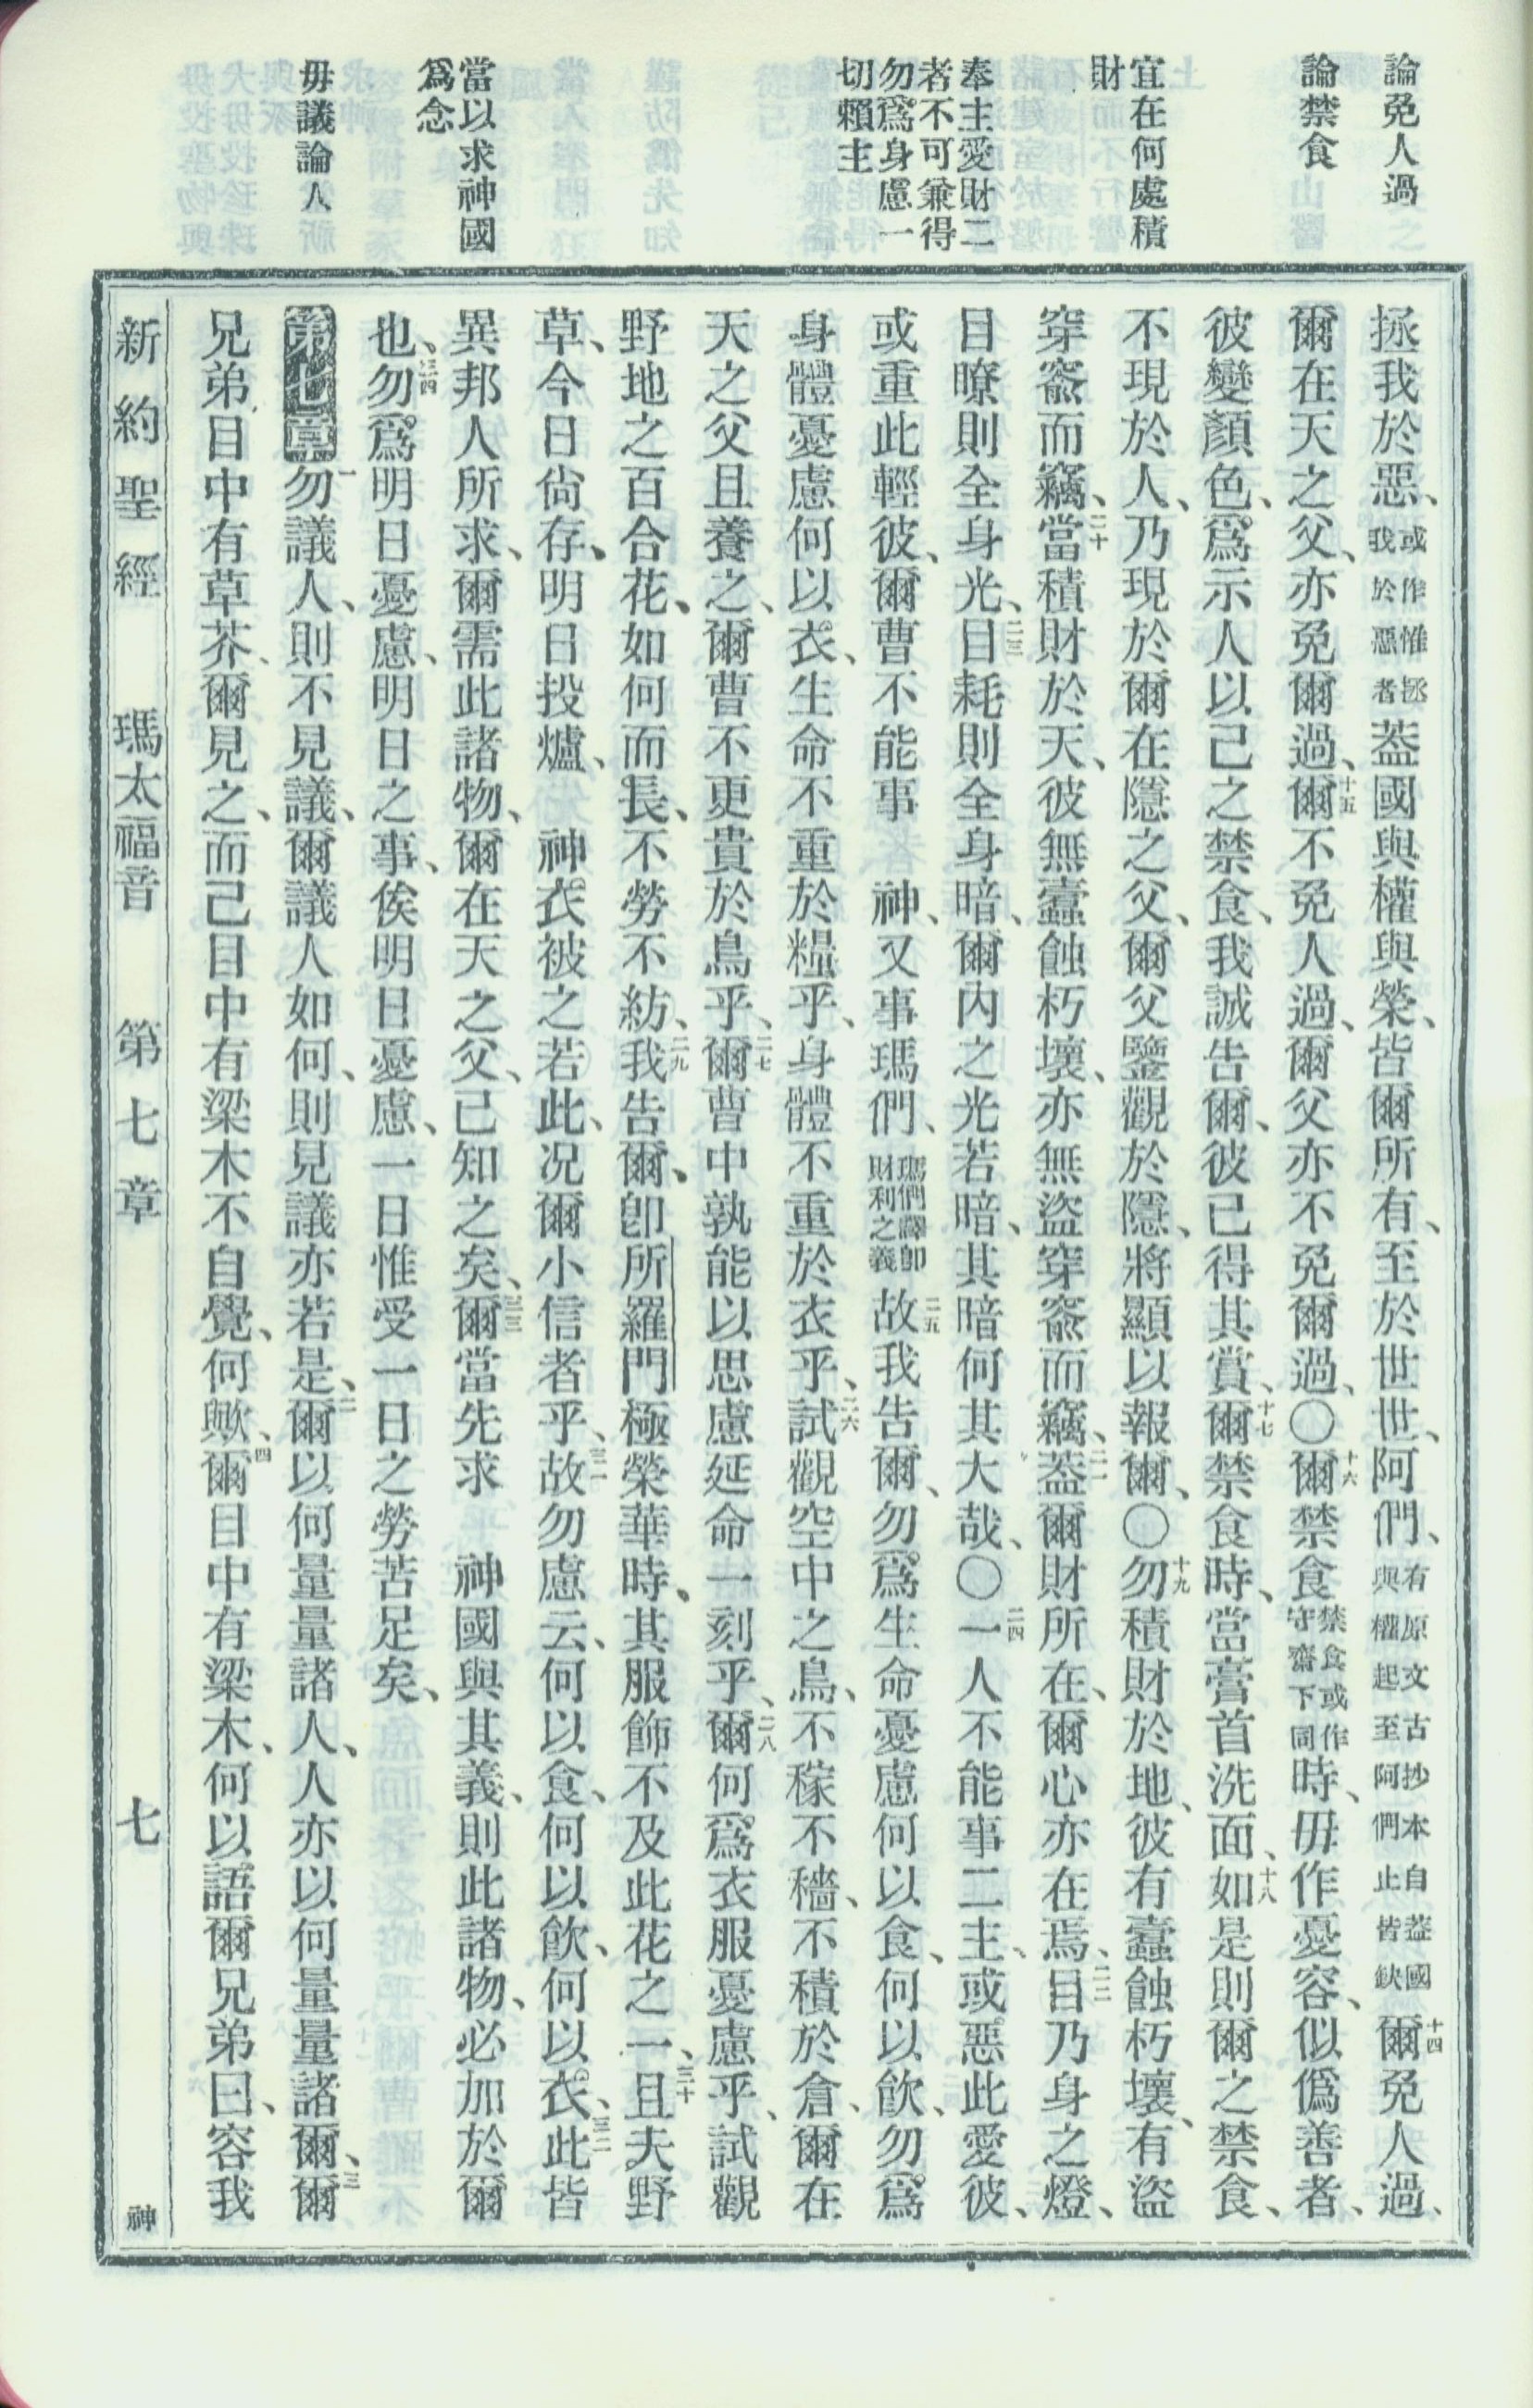 論免人過
論禁食
宜在何處積
財
奉主愛財二
者不可兼得
勿爲身慮一
切賴主
當以求神國
爲念
毋議論人
拯我於惡、或作惟拯我於惡者蓋國與權與榮、皆爾所有、至於世世、阿們、有原文古抄本自蓋國與權起至阿們止皆缺十四爾免人過、
爾在天之父、亦免爾過、十五爾不免人過、爾父亦不免爾過、〇十六爾禁食禁食或作守齋下同時、毋作憂容、似僞善者、
彼變顏色、爲示人以己之禁食、我誠告爾、彼已得其賞、十七爾禁食時、當膏首洗面、十八如是則爾之禁食、
不現於人、乃現於爾在隱之父、爾父鑒觀於隱、將顯以報爾、〇十九勿積財於地、彼有蠹蝕朽壞、有盜
穿窬而竊、二十當積財於天、彼無蠹蝕朽壞、亦無盜穿窬而竊、二一蓋爾財所在、爾心亦在焉、二二目乃身之燈、
目瞭則全身光、二三目耗則全身暗、爾內之光若暗、其暗何其大哉、〇二四一人不能事二主、或惡此愛彼、
或重此輕彼、爾曹不能事 神、又事瑪們、瑪們譯卽財利之義二五故我告爾、勿爲生命憂慮何以食、何以飮、勿爲
身體憂慮何以衣、生命不重於糧乎、身體不重於衣乎、二六試觀空中之鳥、不稼不穡、不積於倉、爾在
天之父且養之、爾曹不更貴於鳥乎、二七爾曹中孰能以思慮延命一刻乎、二八爾何爲衣服憂慮乎、試觀
野地之百合花、如何而長、不勞不紡、二九我告爾、卽所羅門極榮華時、其服飾不及此花之一、三十且夫野
草、今日尙存、明日投爐、 神衣被之若此、况爾小信者乎、三一故勿慮云、何以食、何以飮、何以衣、三二此皆
異邦人所求、爾需此諸物、爾在天之父、已知之矣、三三爾當先求 神國與其義、則此諸物、必加於爾
也、三四勿爲明日憂慮、明日之事、俟明日憂慮、一日惟受一日之勞苦足矣、
第七章一勿議人、則不見議、爾議人如何、則見議亦若是、二爾以何量量諸人、人亦以何量量諸爾、三爾
兄弟目中有草芥、爾見之、而己目中有梁木不自覺、何歟、四爾目中有梁木、何以語爾兄弟曰、容我
新約聖經 瑪太福音 第七章 七 神